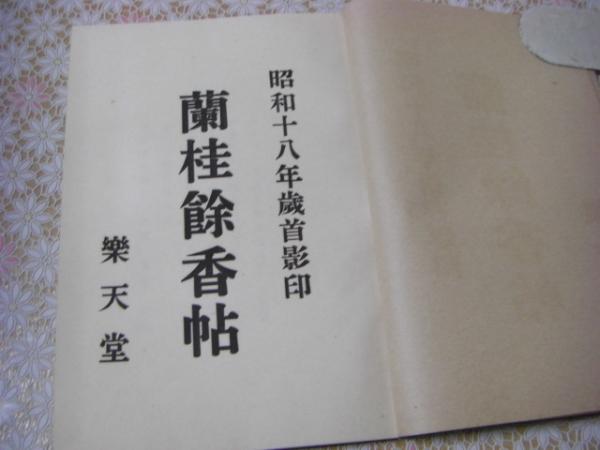 昭和十八年歲首影印
蘭桂餘香帖
樂天堂